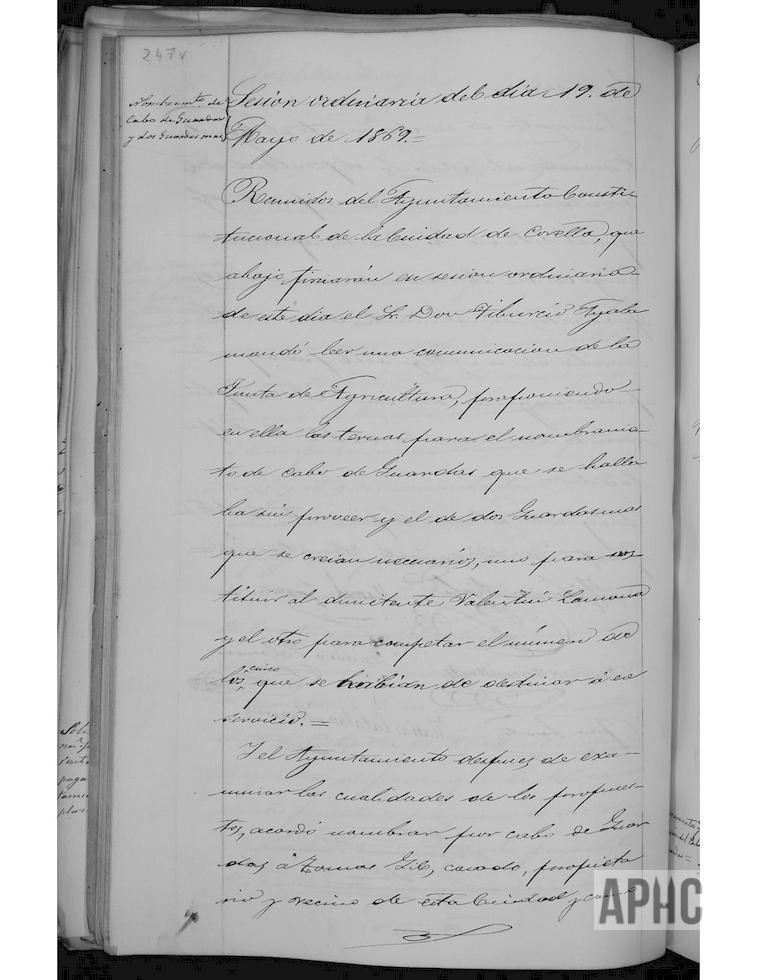 247v
Nombramto. de
Cabo de Guardas
y dos Guardas mas
Sesion ordinaria del dia 19. de
Mayo de 1869.=
Reunidos del Ayuntamiento Consti-
tucional de la Ciudad de Corella, que
abajo firmarán en sesion ordinaria
de este dia el Sr. Don Tiburcio Ayala
mandó leer una comunicacion de la
Junta de Agricultura, proponiendo
en ella las ternas para el nombramien-
to de cabo de Guardas que se halla
ba sin proveer y el de dos Guardas mas
que se creian necesarios, uno para sus-
tituir al dimitente Valentin Lamana
y el otro para competar el número de
los cinco que se habian de destinar á ese
servicio.=
Y el Ayuntamiento despues de exa-
minar las cualidades de los propues-
tos, acordó nombrar por cabo de Guar
das á Tomas Gil, casado, propieta
rio y vecino de esta Ciudad y como
APHC